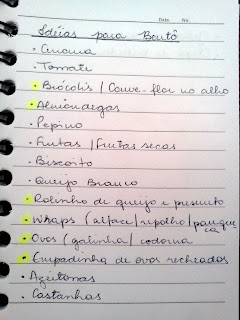 Date No.
Idéias para Bentô
• Cenoura
• Tomate
• Brócolis / Couve-flor no alho
• Almôndegas
• Pepino
• Frutas / Frutas secas
• Biscoito
• Queijo Branco
• Rolinho de queijo e presunto
• Wraps (alface/repolho/panque
ca)
• Ovos (galinha/codorna
• Empadinha de ovos recheados
• Azeitonas
• Castanhas